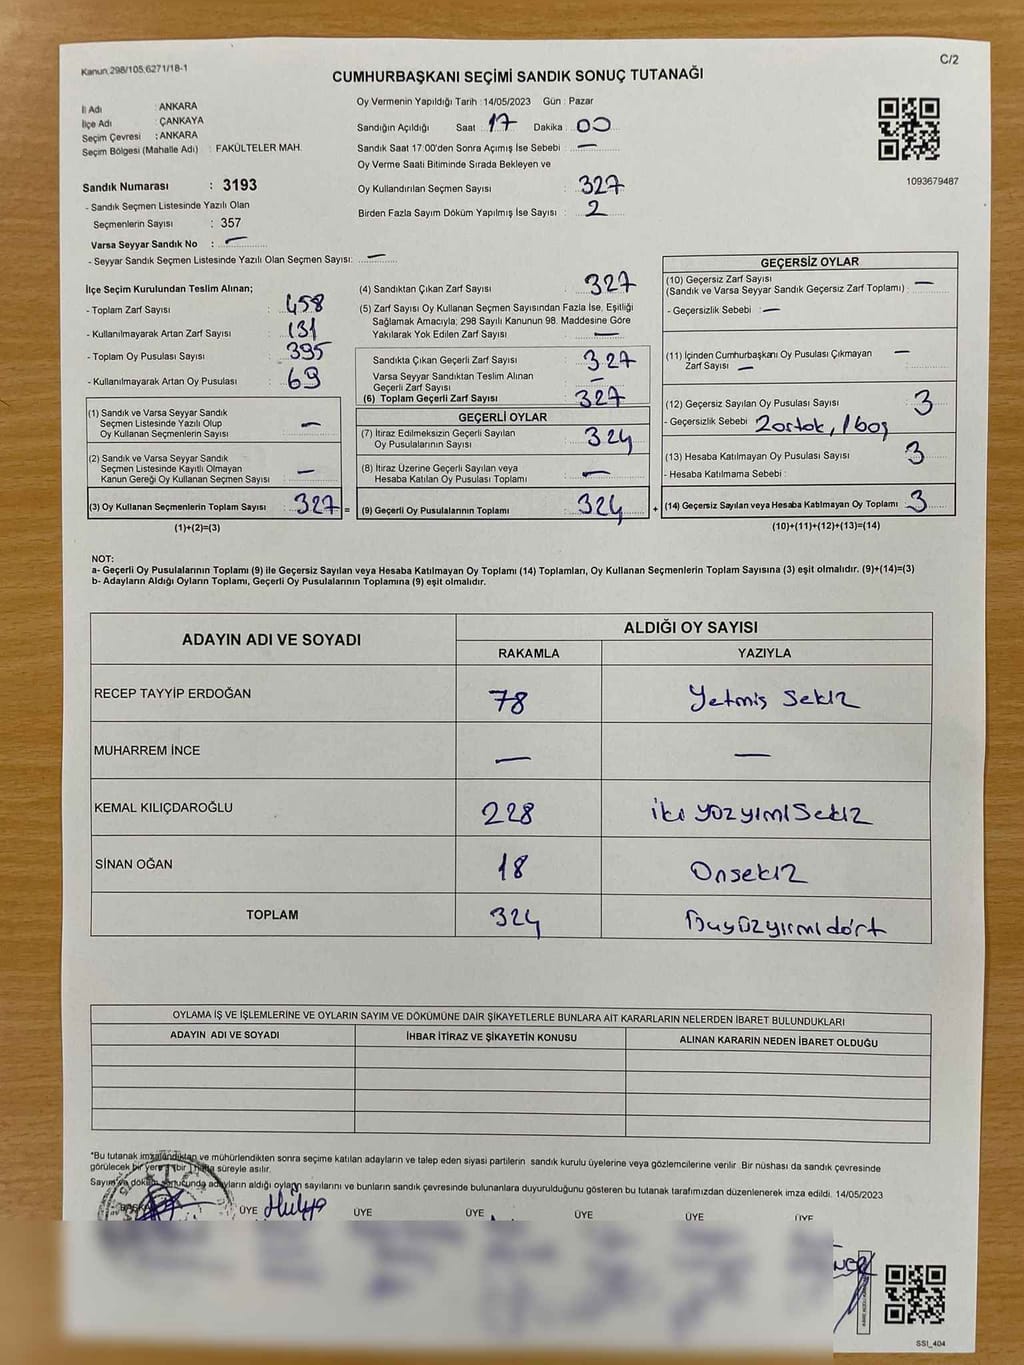 Kanun;298/105;6271/18-1
C/2
CUMHURBAŞKANI SEÇİMİ SANDIK SONUÇ TUTANAĞI
İl Adı : ANKARA
İlçe Adı : ÇANKAYA
Seçim Çevresi : ANKARA
Seçim Bölgesi (Mahalle Adı) : FAKÜLTELER MAH.
Sandık Numarası : 3193
- Sandık Seçmen Listesinde Yazılı Olan
Seçmenlerin Sayısı : 357
Varsa Seyyar Sandık No : —
- Seyyar Sandık Seçmen Listesinde Yazılı Olan Seçmen Sayısı: —
Oy Vermenin Yapıldığı Tarih : 14/05/2023 Gün : Pazar
Sandığın Açıldığı Saat : 17 Dakika : 00
Sandık Saat 17:00'den Sonra Açımış İse Sebebi : —
Oy Verme Saati Bitiminde Sırada Bekleyen ve
Oy Kullandırılan Seçmen Sayısı : 327
Birden Fazla Sayım Döküm Yapılmış İse Sayısı : 2
1093679487
İlçe Seçim Kurulundan Teslim Alınan;
- Toplam Zarf Sayısı : 458
- Kullanılmayarak Artan Zarf Sayısı : 131
- Toplam Oy Pusulası Sayısı : 395
- Kullanılmayarak Artan Oy Pusulası : 69
(1) Sandık ve Varsa Seyyar Sandık
Seçmen Listesinde Yazılı Olup
Oy Kullanan Seçmenlerin Sayısı : —
(2) Sandık ve Varsa Seyyar Sandık
Seçmen Listesinde Kayıtlı Olmayan
Kanun Gereği Oy Kullanan Seçmen Sayısı : —
(3) Oy Kullanan Seçmenlerin Toplam Sayısı : 327 =
(1)+(2)=(3)
(4) Sandıktan Çıkan Zarf Sayısı : 327
(5) Zarf Sayısı Oy Kullanan Seçmen Sayısından Fazla İse, Eşitliği
Sağlamak Amacıyla; 298 Sayılı Kanunun 98. Maddesine Göre
Yakılarak Yok Edilen Zarf Sayısı : —
Sandıkta Çıkan Geçerli Zarf Sayısı : 327
Varsa Seyyar Sandıktan Teslim Alınan
Geçerli Zarf Sayısı : —
(6) Toplam Geçerli Zarf Sayısı : 327
GEÇERLİ OYLAR
(7) İtiraz Edilmeksizin Geçerli Sayılan
Oy Pusulalarının Sayısı : 324
(8) İtiraz Üzerine Geçerli Sayılan veya
Hesaba Katılan Oy Pusulası Toplamı : —
(9) Geçerli Oy Pusulalarının Toplamı : 324 +
GEÇERSİZ OYLAR
(10) Geçersiz Zarf Sayısı
(Sandık ve Varsa Seyyar Sandık Geçersiz Zarf Toplamı) : —
- Geçersizlik Sebebi : —
(11) İçinden Cumhurbaşkanı Oy Pusulası Çıkmayan —
Zarf Sayısı : —
(12) Geçersiz Sayılan Oy Pusulası Sayısı : 3
- Geçersizlik Sebebi 2ortak, 1boş
(13) Hesaba Katılmayan Oy Pusulası Sayısı : 3
- Hesaba Katılmama Sebebi :
(14) Geçersiz Sayılan veya Hesaba Katılmayan Oy Toplamı : 3
(10)+(11)+(12)+(13)=(14)
NOT:
a- Geçerli Oy Pusulalarının Toplamı (9) ile Geçersiz Sayılan veya Hesaba Katılmayan Oy Toplamı (14) Toplamları, Oy Kullanan Seçmenlerin Toplam Sayısına (3) eşit olmalıdır. (9)+(14)=(3)
b- Adayların Aldığı Oyların Toplamı, Geçerli Oy Pusulalarının Toplamına (9) eşit olmalıdır.
ADAYIN ADI VE SOYADI
ALDIĞI OY SAYISI
RAKAMLA YAZIYLA
RECEP TAYYİP ERDOĞAN 78 Yetmiş Sekiz
MUHARREM İNCE — —
KEMAL KILIÇDAROĞLU 228 iki yüzyimiSekiz
SİNAN OĞAN 18 Onsekiz
TOPLAM 324 üçyüzyirmidört
OYLAMA İŞ VE İŞLEMLERİNE VE OYLARIN SAYIM VE DÖKÜMÜNE DAİR ŞİKAYETLERLE BUNLARA AİT KARARLARIN NELERDEN İBARET BULUNDUKLARI
ADAYIN ADI VE SOYADI İHBAR İTİRAZ VE ŞİKAYETİN KONUSU ALINAN KARARIN NEDEN İBARET OLDUĞU
*Bu tutanak imzalandıktan ve mühürlendikten sonra seçime katılan adayların ve talep eden siyasi partilerin sandık kurulu üyelerine veya gözlemcilerine verilir. Bir nüshası da sandık çevresinde
görülecek bir yere 1 (bir) hafta süreyle asılır.
Sayım ve döküm sonucunda adayların aldığı oyların sayılarını ve bunların sandık çevresinde bulunanlara duyurulduğunu gösteren bu tutanak tarafımızdan düzenlenerek imza edildi. 14/05/2023
ÜYE Hülya ÜYE ÜYE ÜYE ÜYE ÜYE
SSİ_404